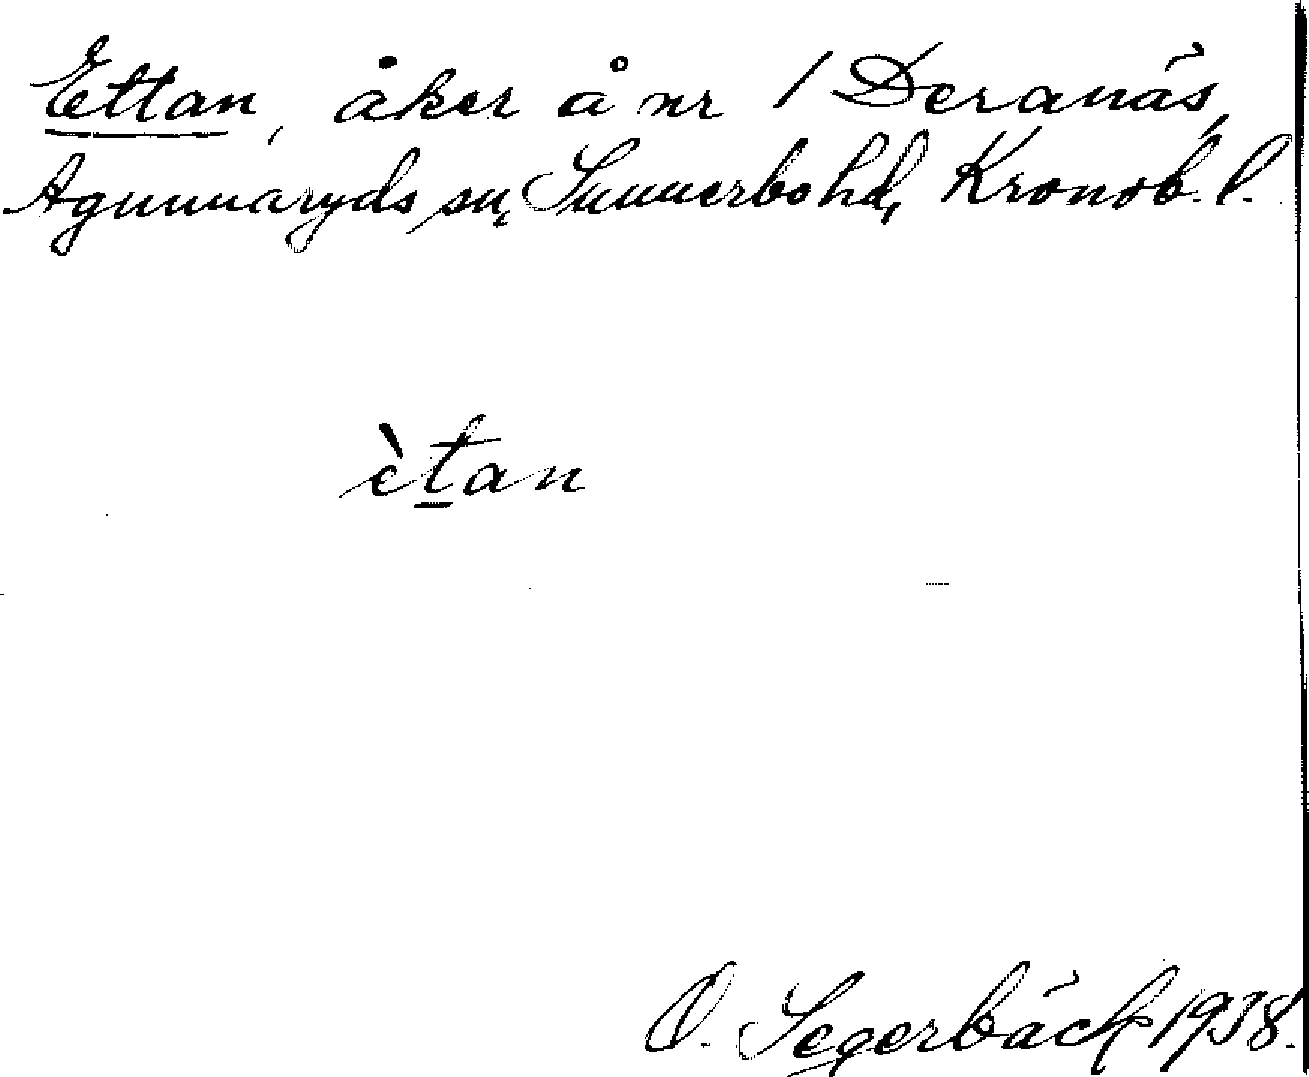 Ettan, åker å nr 1 Deranäs,
Agunnaryds sn, Sunnerbo hd, Kronob. l.
ètan
O. Segerbäck 1938.